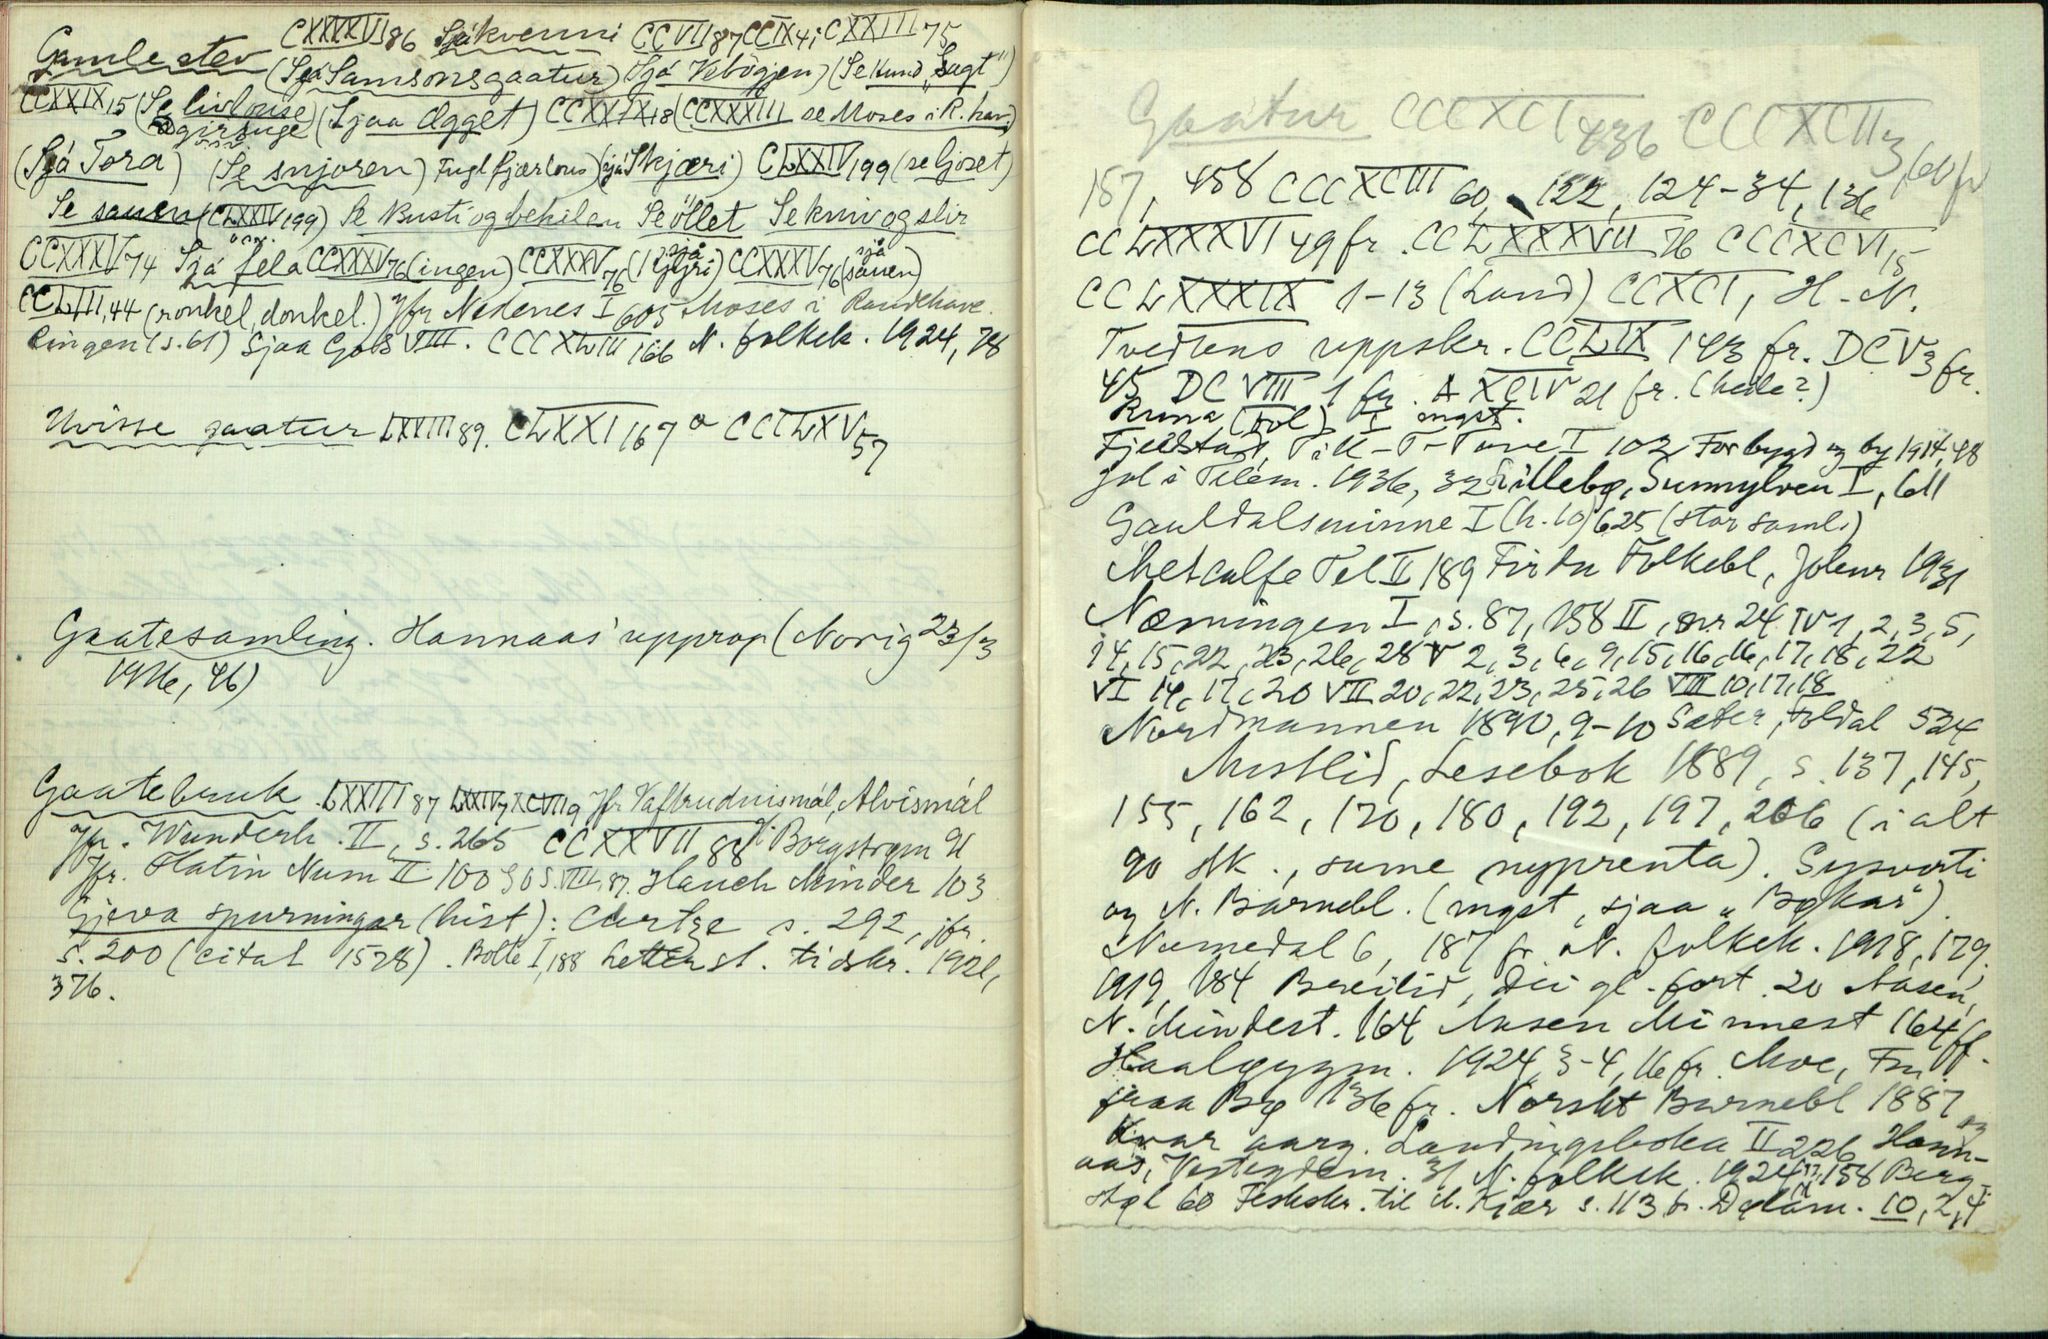 Gamle stev CXXXXVI 86 Sjå kvenni CCVII 87 CCIX 41 CXXIII 75
(Sjå Samsonsgaatur) Sjå Vebögjen) (Se kund "sagt")
CCXXIX 15 (Se livlause (Sjaa Egget) CCXXIX 18 (CCXXXIII se Moses i R. hav)
(Sjå Tora) (Se snjoren) Fugl fjærlous) (sjå Skjæri) CLXXIV 199 (se ljoset)
Se sauen (CLXXIV 199) Se Busti og behilen Se öllet Se kniv og slir
CCXXXV 74 Sjå fela CCXXXV 76 (ingen) CCXXXV 76 CCXXXV 76 (sjå sauen)
CCLIII, 44 (ronkel, donkel.) Jfr Nedenes I 603 Moses i Raudehave.
Ringen (s. 61) Sjaa Gols VIII. CCCXLIII 166 N. folkek. 1924, 78
Uvisse gaatur LXXIII 89. CLXXI 167 a CCCLXV 57
Gaatesamling. Hannaas' upprop (Norig 23/3
1916, 46)
Gaatebruk LXXIII 87 LXXIV 7 XCVII 9 Jfr Vaftrudnismál, Alvismál
Jfr. Wunderh. II, s. 265 CCXXVII 88 Borgstrøm 21
Jfr. Statin Num II 100 Gols VIII, 87. Hauch Minder 103
Gjeva spurningar (hist): Curtze s. 292, jfr.
s. 200 (citat 1528). Bolte I, 188 Letterst. tidskr. 1921,
376.
Gaatur CCCXCI 436 CCCXCII 3, 60 fr
187, 458 CCCXCIII 60, 122, 124-34, 136
CCLXXXVI 49 fr. CCLXXXVII 76 CCCXCVI 15
CCLXXXIX 1-13 (Land) CCXCI, H-N.
Tvedtens uppskr. CCLIX 143 fr. DCV 3 fr.
45 DCVIII 1 fr. A XCIV 21 fr. (heile?)
Runa (Vol) I mgst.
Fjellstad, I 102 For bygd og by 1914, 48
Jol i Telem. 1936, 32 Lillebø, Sunnylven I, 611
Gauldalsminne I (h. 10) 625 (stor saml.)
Metcalfe Tel II 189 Firda Folkebl, Jolenr 1931
Næmingen I, s. 87, 158 II, nr 24 IV 1, 2, 3, 5,
14, 15, 22, 23, 26, 28 V 2, 3, 6, 9, 15, 16, 16, 17, 18, 22
VI 14, 17, 20 VII 20, 22, 23, 25, 26 VIII 10, 17, 18
Nordmannen 1890, 9-10 Sæter, Foldal 524
Austlid, Lesebok 1889, s. 137, 145,
155, 162, 170, 180, 192, 197, 206 (i alt
90 stk., sume nyprenta). Sysvorti
og N. Barnebl. (mgst, sjaa "Bøkar").
Numedal 6, 187 fr. N. folkek. 1918, 179,
1919, 184 Breilid, Dei gl. fort. 20 Aasen,
N. Mindest. 164 Aasen Minnest 164 ff.
Haaløygm. 1924, 3-4, 16 fr. Moe, Fru
136 fr. Norskt Barnebl 1887 og
kvar aarg. Landingsboka II 226 Hann-
aas, Vestegdem. 31 N. folkek. 1924, 158 Berg-
støl 60 Festskr. til A. Kjær s. 113 fr. Dølam. 10, 2, 4